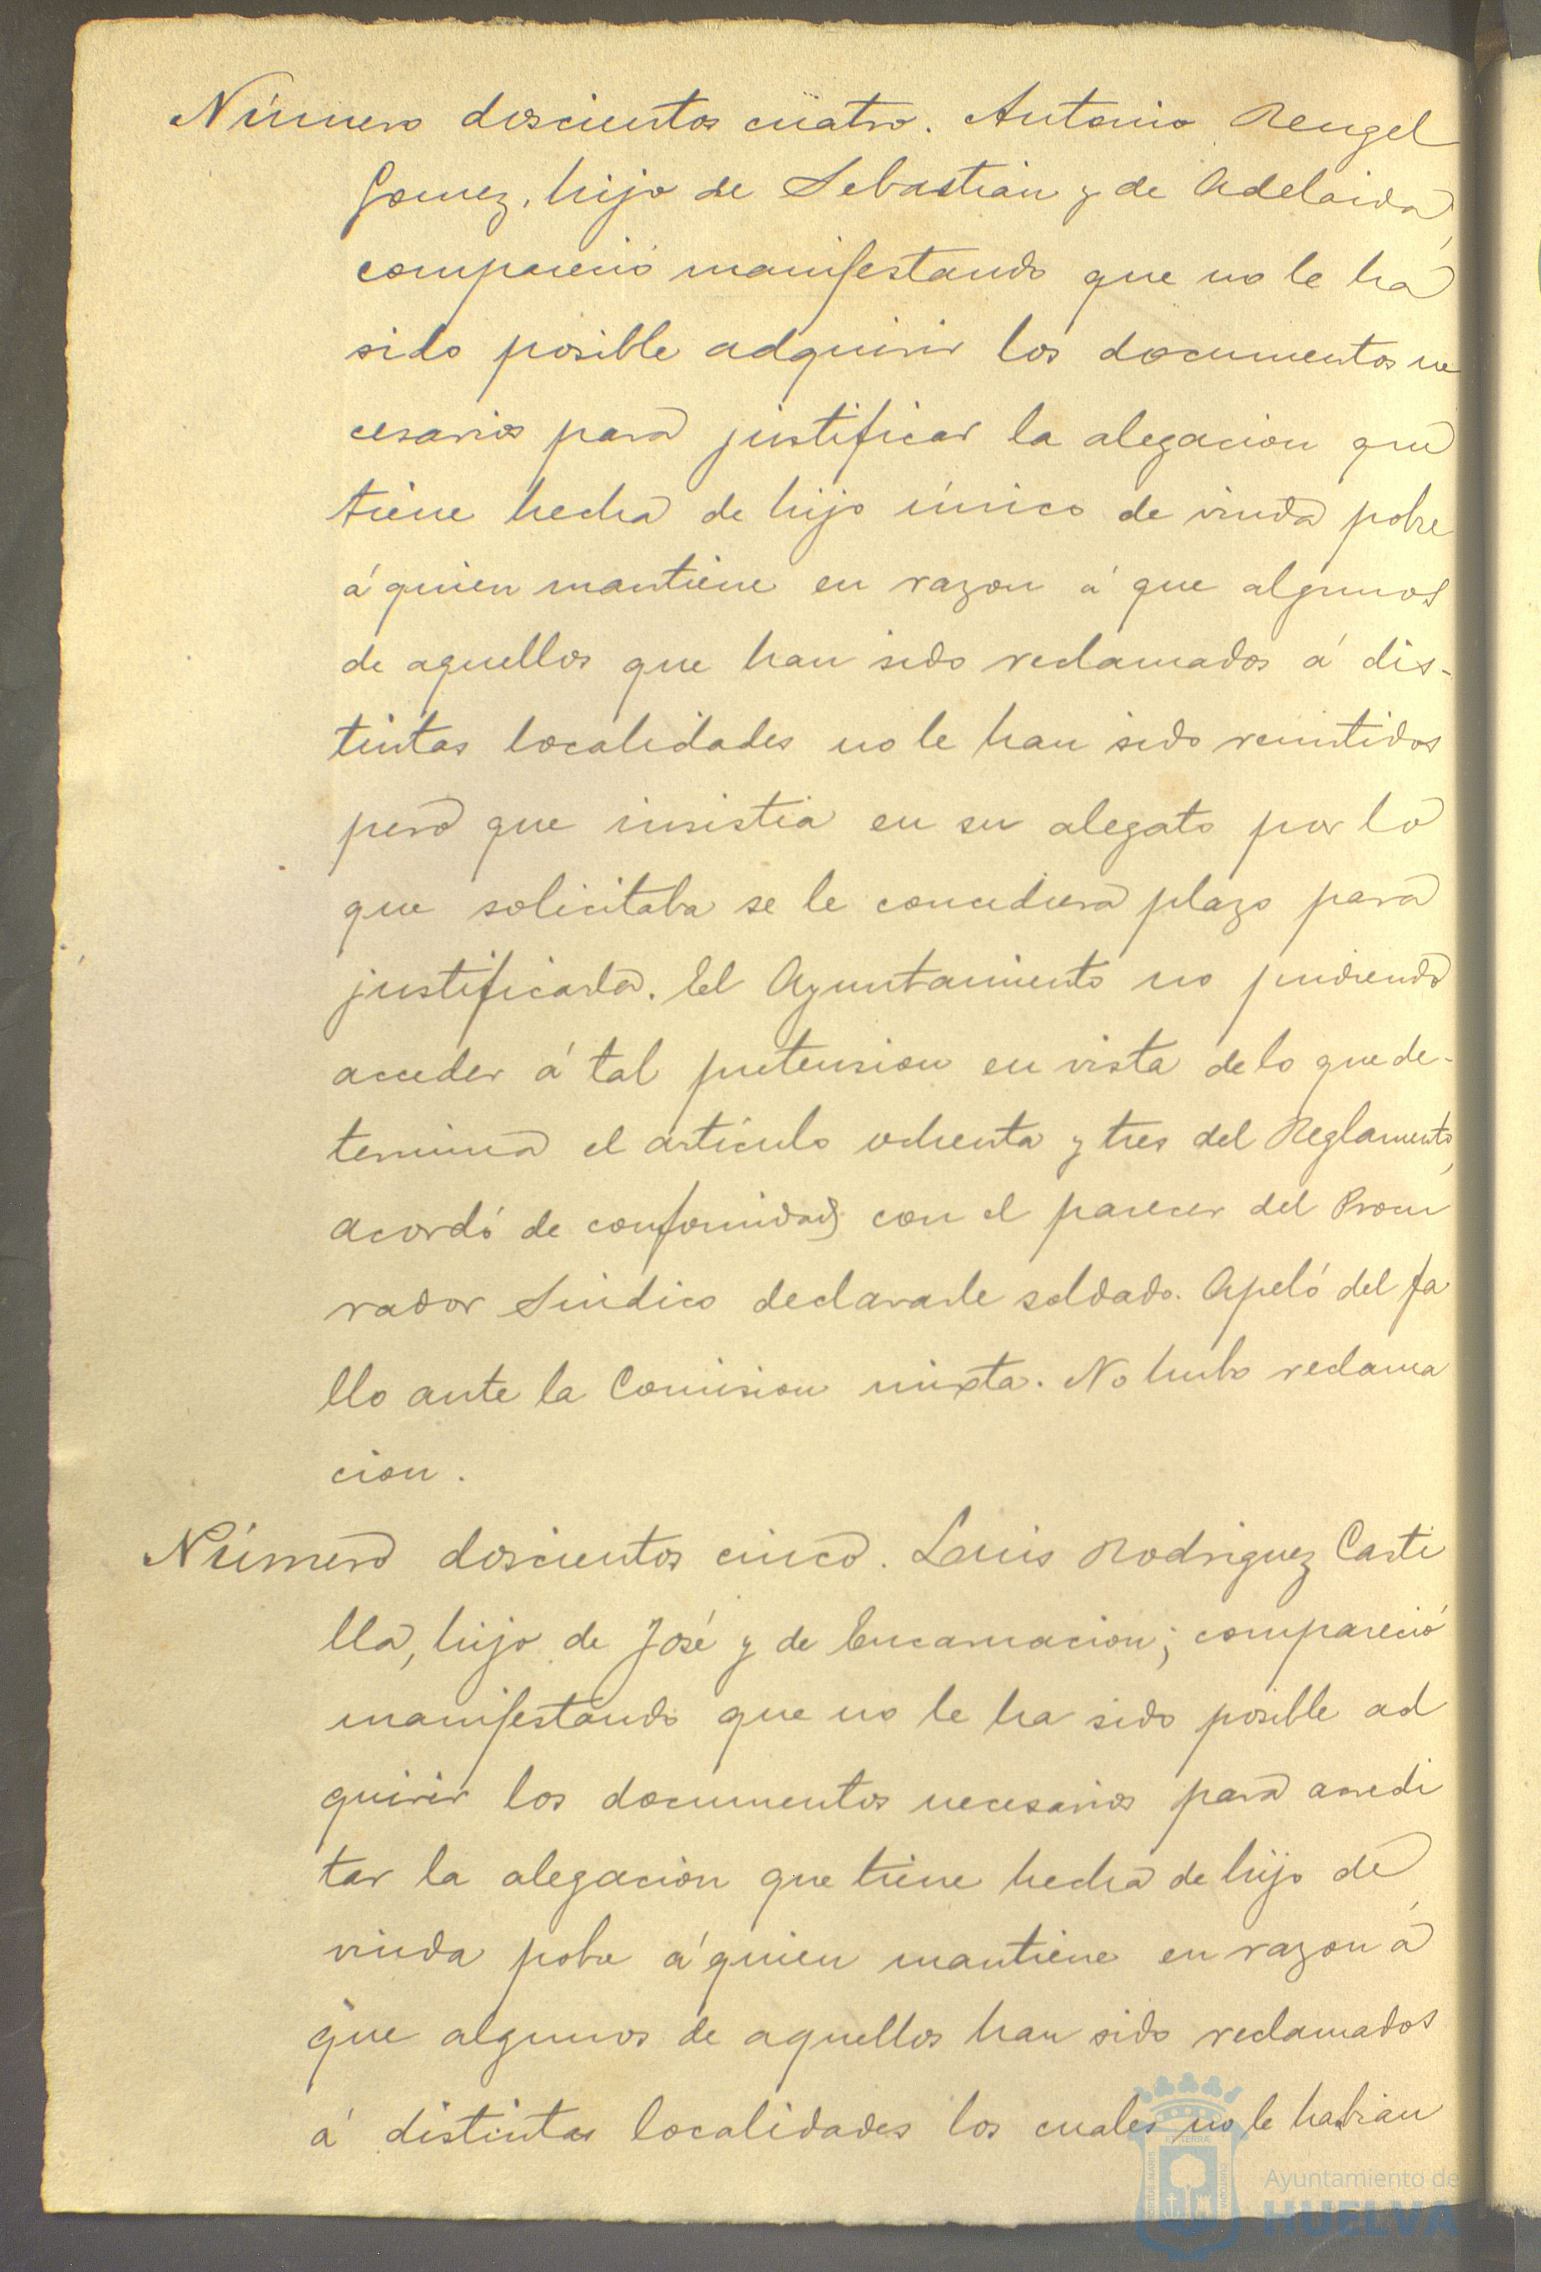 Número doscientos cuatro. Antonio Rengel
Gomez, hijo de Sebastián y de Adelaida,
compareció manifestando que no le ha
sido posible adquirir los documentos ne
cesarios para justificar la alegacion que
tiene hecha de hijo único de viuda pobre
á quien mantiene en razon á que algunos
de aquellos que han sido reclamados á dis-
tintas localidades no le han sido remitidos
pero que insistia en su alegato por lo
que solicitaba se le concediera plazo para
justificarla. El Ayuntamiento no pudiendo
acceder á tal pretension en vista de lo que de-
termina el artículo ochenta y tres del Reglamento,
acordó de conformidad con el parecer del Procu
rador Sindico declararle soldado. Apeló del fa
llo ante la Comision mixta. No hubo reclama
cion.
Número doscientos cinco. Luis Rodriguez Casti
lla, hijo de José y de Encarnacion; compareció
manifestando que no le ha sido posible ad
quirir los documentos necesarios para acredi
tar la alegación que tiene hecha de hijo de
viuda pobre á quien mantiene en razon á
que algunos de aquellos han sido reclamados
á distintas localidades los cuales no le habian
Ayuntamiento de
HUELVA